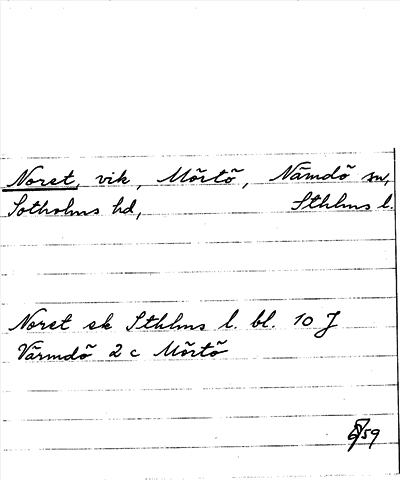 Noret, vik, Mörtö, Nämdö sn,
Sotholms hd, Sthlms l.
Noret ek Sthlms l. bl. 10 J
Värmdö 2 c Mörtö
59